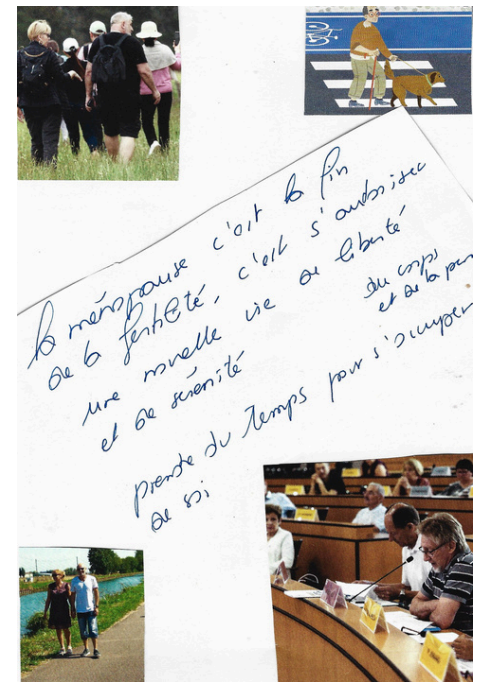 la ménopause c'est la fin
de la fertilité, c'est s'autoriser
une nouvelle vie de liberté
et de sérénité
du corps
et de la
prendre du temps pour s'occuper
de soi